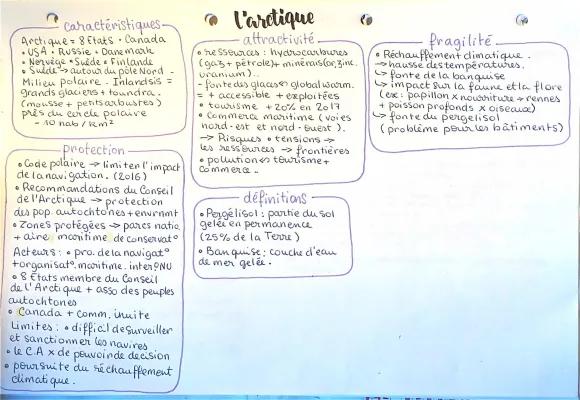 L'arctique
caractéristiques
Arctique = 8 Etats • Canada
• USA • Russie • Danemark
• Norvège • Suède • Finlande
• Suède → autour du pôle Nord -
Milieu polaire - Inlandsis =
grands glaciers + toundra.
(mousse + petits arbustes)
près du cercle polaire
- 10 hab / km²
attractivité
• ressources : hydrocarbures
(gaz + pétrole) + minérais (or, zinc,
uranium)..
- fonte des glaces ↔ global worm.
= + accessible + exploitées
• tourisme + 20% en 2017
• Commerce maritime (voies
nord-est et nord-ouest).
→ Risques • tensions →
les ressources → frontières
• pollution ↔ tourisme +
commerce..
fragilité
• Réchauffement climatique.
→ hausse des températures.
↳ fonte de la banquise
↳ impact sur la faune et la flore
(ex : papillon x nourriture → rennes
+ poisson profonds x oiseaux)
↳ fonte du pergélisol
(problème pour les bâtiments)
protection
• Code polaire → limiter l'impact
de la navigation. (2016)
• Recommandations du Conseil
de l'Arctique → protection
des pop. autochtones + envrnmt
• Zones protégées → parcs natio.
+ aire maritime de conservat°
Acteurs : • pro. de la navigat°
+ organisat°. maritime. inter ONU
• 8 États membre du Conseil
de l'Arctique + asso des peuples
autochtones
• Canada + comm. inuite
Limites : • difficil de surveiller
et sanctionner les navires
• le C.A x de pouvoir de decision
• poursuite du réchauffement
climatique.
définitions
• Pergélisol : partie du sol
gelée en permanence
(25% de la Terre)
• Banquise : couche d'eau
de mer gelée.